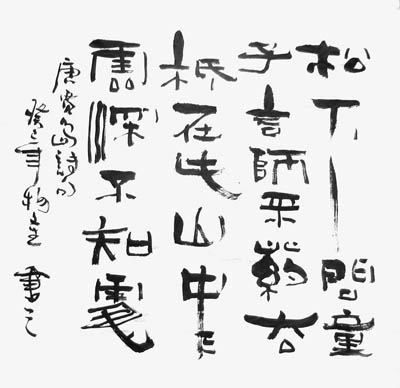 松下問童
子言師采葯去
祇在此山中
雲深不知處
唐賈島詩句
癸巳年 書之